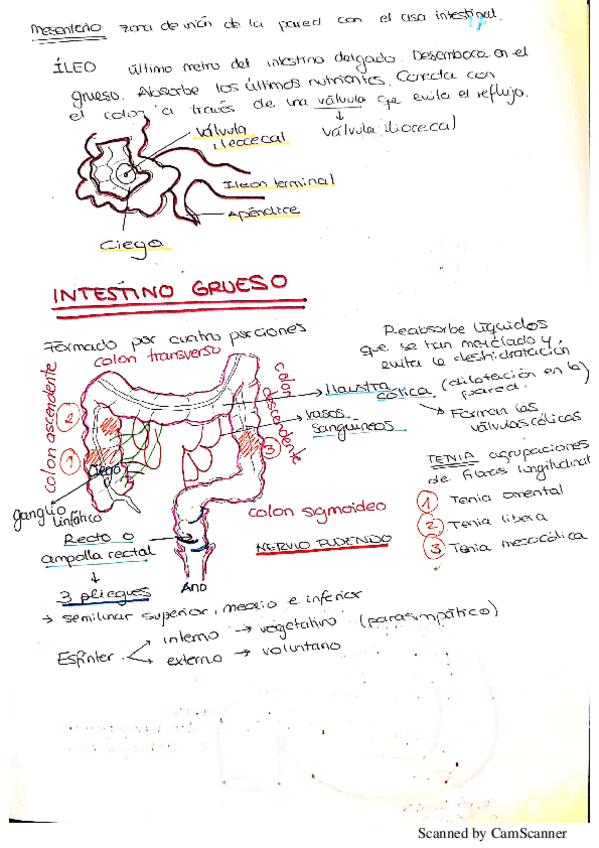 Mesenterio zona de unión de la pared con el asa intestinal.
ÍLEO último metro del intestino delgado. Desemboca en el
grueso. Absorbe los últimos nutrientes. Conecta con
el colon a través de una válvula que evita el reflujo.
válvula iliocecal
válvula
ileocecal
Ileon terminal
Apéndice
Ciego
INTESTINO GRUESO
Formado por cuatro porciones
Reabsorbe líquidos
que se han mezclado y
evita la deshidratación
colon transverso
colon ascendente
colon descendente
Haustra
cólica (dilatación en la
pared)
Forman las
válvulas cólicas
vasos
sanguíneos
2
1
3
Ciego
TENIA agrupaciones
de fibras longitudinal
1 Tenia omental
2 Tenia libera
3 Tenia mesocólica
ganglio
linfático
colon sigmoideo
NERVIO PUDENDO
Recto o
ampolla rectal
Ano
3 pliegues
→ semilunar superior, medio e inferior
Esfínter
interno → vegetativo (parasimpático)
externo → voluntario
Scanned by CamScanner